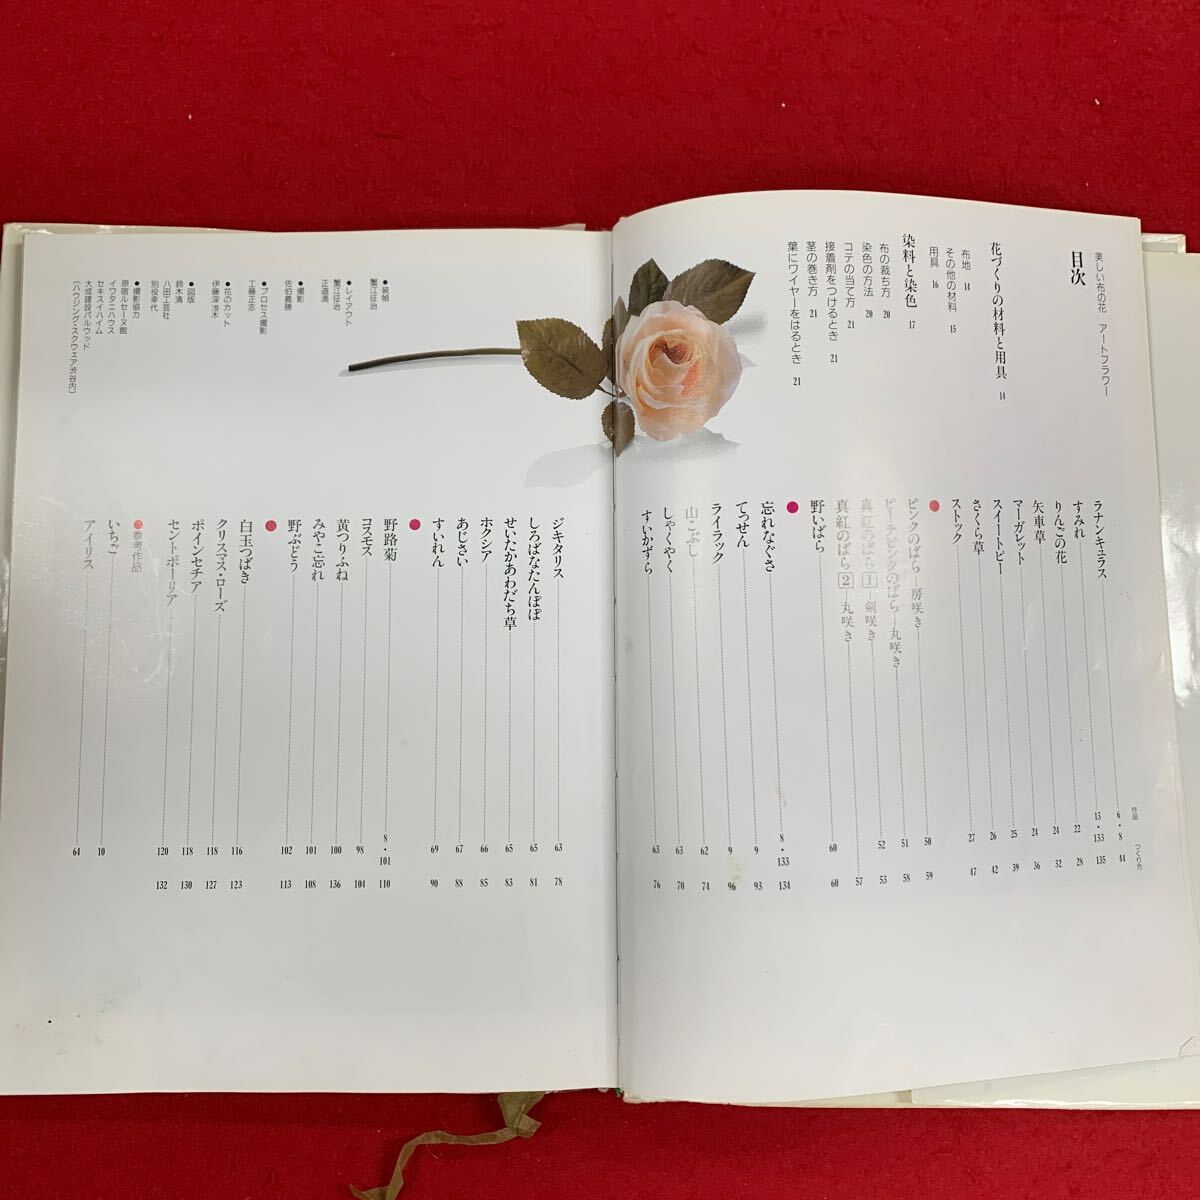 美しい布の花 アートフラワー
目次
花づくりの材料と用具 14
布地 14
その他の材料 15
用具 16
染料と染色 17
布の裁ち方 20
染色の方法 20
コテの当て方 21
接着剤をつけるとき 21
茎の巻き方 21
葉にワイヤーをはるとき 21
作品 つくり方
ラナンキュラス 6・8 44
すみれ 13・133 135
りんごの花 22 28
矢車草 24 32
マーガレット 24 36
スイートピー 25 39
さくら草 26 42
ストック 27 47
ピンクのばら—房咲き 50 59
ピーチピンクのばら—丸咲き 51 58
真紅のばら1—剣咲き 52 53
真紅のばら2—丸咲き 57
野いばら 60 60
●
忘れなぐさ 8・133 134
てっせん 9 93
ライラック 9 96
山こぶし 62 74
しゃくやく 63 70
すいかずら 63 76
ジキタリス 63 78
しろばなたんぽぽ 65 81
せいたかあわだち草 65 83
ホクシア 66 85
あじさい 67 88
すいれん 69 90
●
野路菊 8・101 110
コスモス 98 104
黄つりふね 100 136
みやこ忘れ 101 108
野ぶどう 102 113
●
白玉つばき 116 123
クリスマス・ローズ 118 127
ポインセチア 118 130
セントポーリア 120 132
●参考作品
いちご 10
アイリス 64
●装幀
蟹江征治
●レイアウト
蟹江征治
正道満
●撮影
佐伯義勝
●プロセス撮影
工藤正志
●花のカット
●図版
鈴木清
八田工芸社
別役幸代
●撮影協力
原宿ルセーヌ館
イワタニハウス
セキスイハイム
大成建設パルウッド
(ハウジング・スクウェア渋谷内)